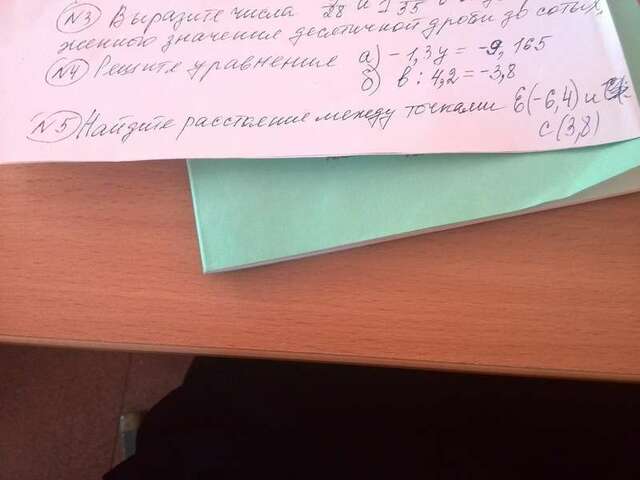 №3 Выразите числа 28 и 1 35 в
женного значения десятичной дроби до сотых.
№4 Решите уравнение а) -1,3y = -9,165
б) в : 4,2 = -3,8
№5 Найдите расстояние между точками E(-6,4) и
C(3,8)